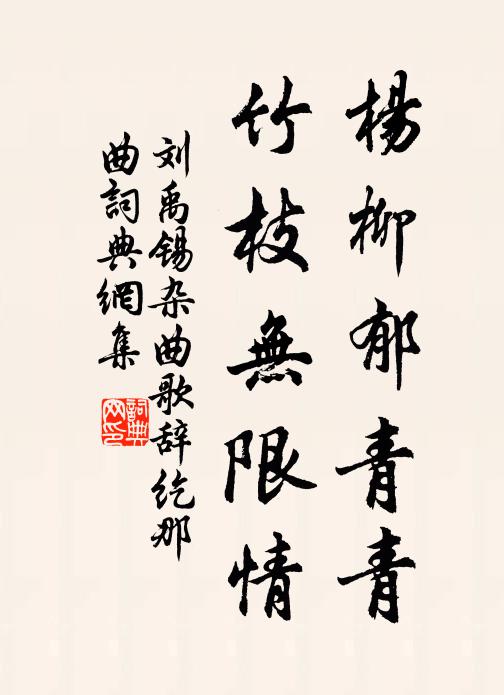 楊柳郁青青
竹枝無限情
刘禹锡杂曲歌辞纥那
曲詞典網集
詞典
网印